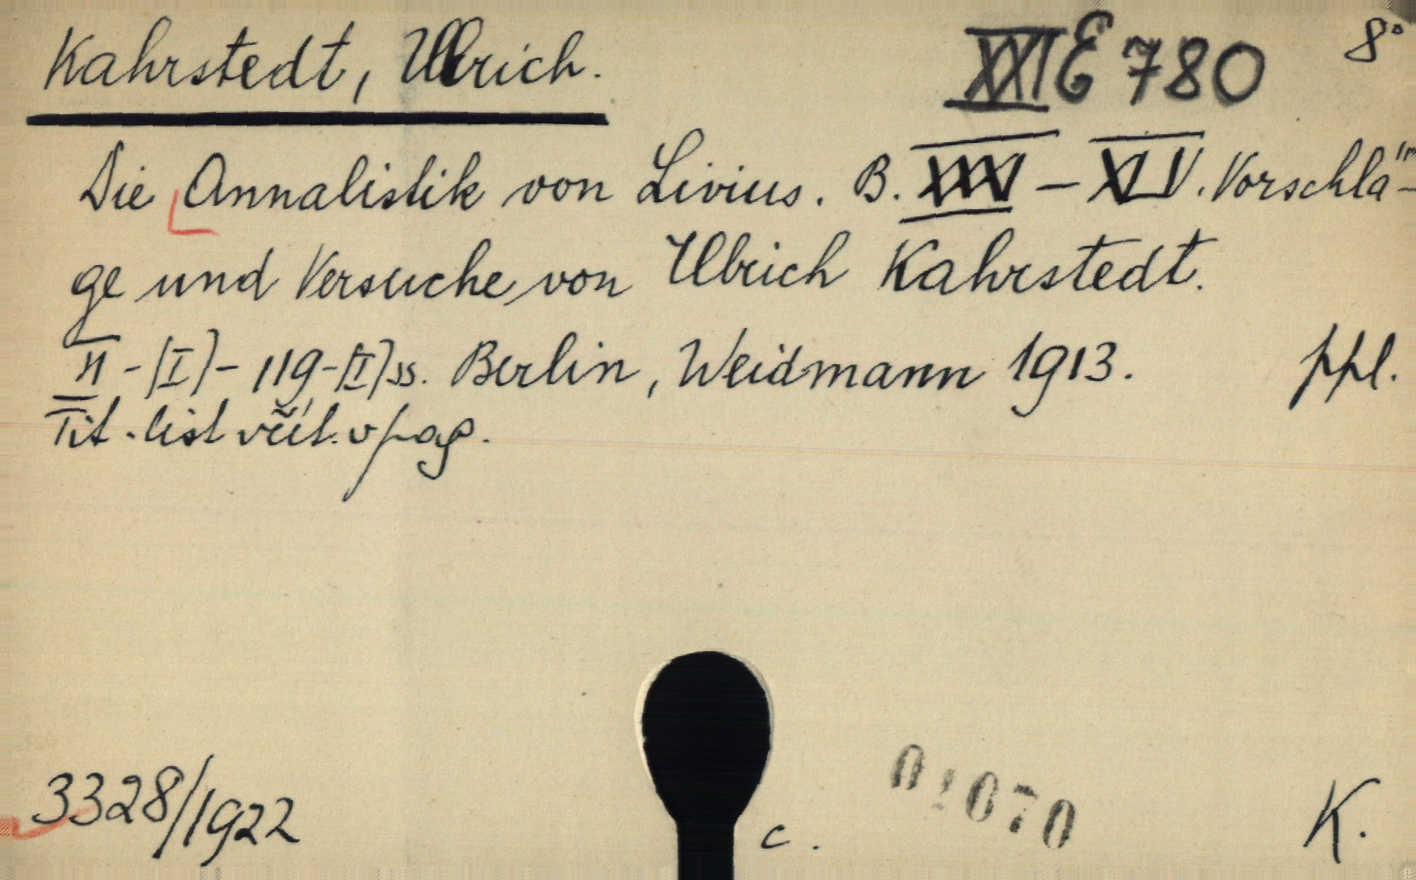 Kahrstedt, Ulrich. XXI E 780 8°
Die Annalistik von Livius. B. XXXI – XLV. Vorschlä-
ge und Versuche von Ulrich Kahrstedt.
II - [I] - 119 - [I] ss. Berlin, Weidmann 1913. ppl.
Tit. list včít. v pag.
3328/1922
c.
01070
K.